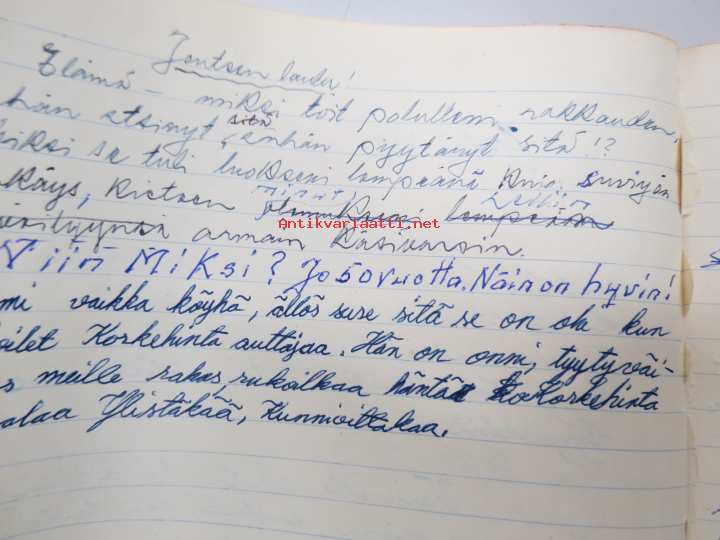 Joutsen laulu!
Elämä – miksi toit polulleni rakkauden,
hän etsinyt sitä, enhän pyytänyt sitä!?
miksi se tuli luokseni lempeänä kuin suvijen
käys, kietoen minut lempeän
armain käsivarsin.
Antikvariaatti.net
Niin Miksi? Jo 50 vuotta. Näin on hyvin!
mi vaikka köyhä, ällös sure sitä se on ola kun
oilet Korkehinta auttajaa. Hän on onni, tyytyväi-
s meille rakas, rukoilkaa häntä Korkehinta
alaa Ylistäkää, Kunnioittakaa.